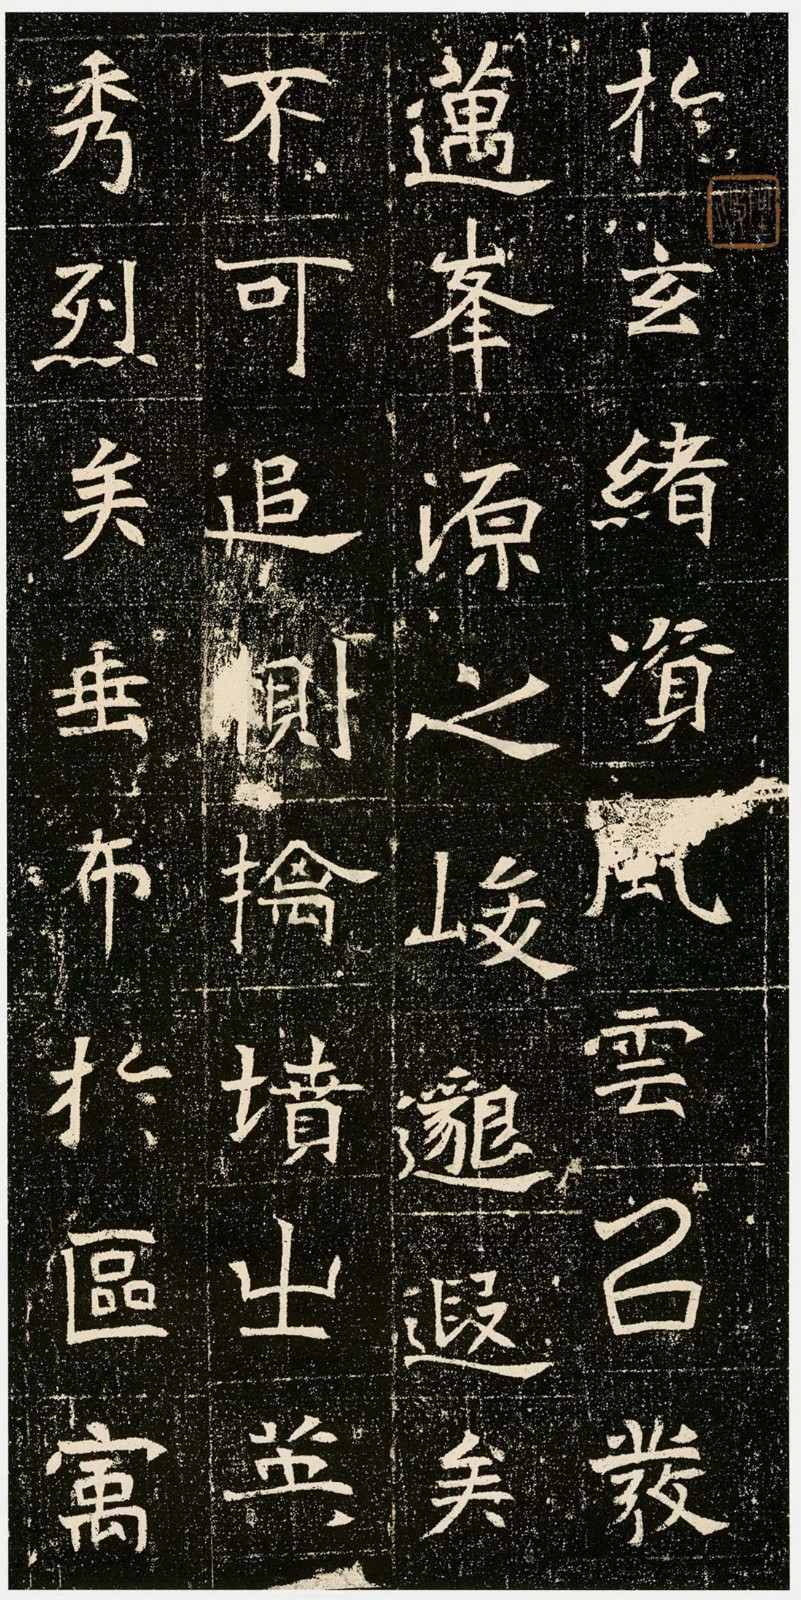 於玄緒資風雲召發
邁峯源之峻邈遐矣
不可追惻擒墳出英
秀烈矣垂布於區寓